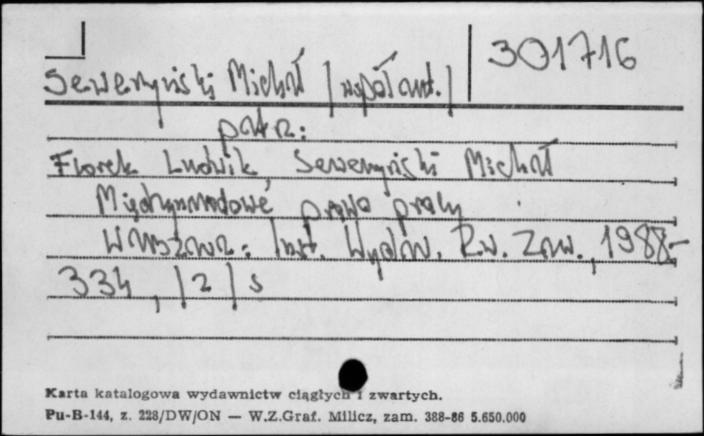 301716
Seweryński Michał /współaut./
patrz:
Florek Ludwik, Seweryński Michał
Międzynarodowe prawo pracy
Warszawa: Inst. Wydaw. Zw. Zaw., 1988.-
334, /2/ s
Karta katalogowa wydawnictw ciągłych i zwartych.
Pu-B-144, z. 228/DW/ON — W.Z.Graf. Milicz, zam. 388-86 5.650.000